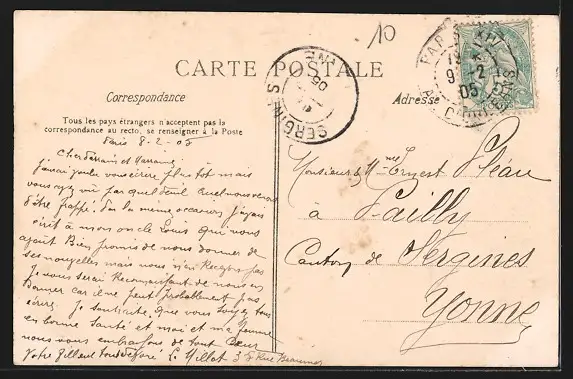 10
CARTE POSTALE
Correspondance
Adresse
Tous les pays étrangers n'acceptent pas la
correspondance au recto, se renseigner à la Poste
Paris 8-2-05
Cher Parrain et Marraine
j'aurai voulu vous écrire plus tôt mais
vous avez vu par quel deuil cruel nous venons
d'être frappé. Par la même occasion j'avais
écrit à mon oncle Louis qui nous
avait Bien promis de nous donner de
ses nouvelles mais nous n'en Recevons pas
Je vous serai Reconnaissant de nous en
Donner car il ne peut Probablement pas
écrire. Je souhaite que vous soyez tous
en bonne santé et moi et ma femme
nous vous embrassons de tout Cœur
Votre filleul tout dévoué L. Millot 3 Rue
Monsieur & Mme Ernest Pléau
à Pailly
Canton de Sergines
Yonne
SERGINES
YONNE
05
PARIS
9 -2
05